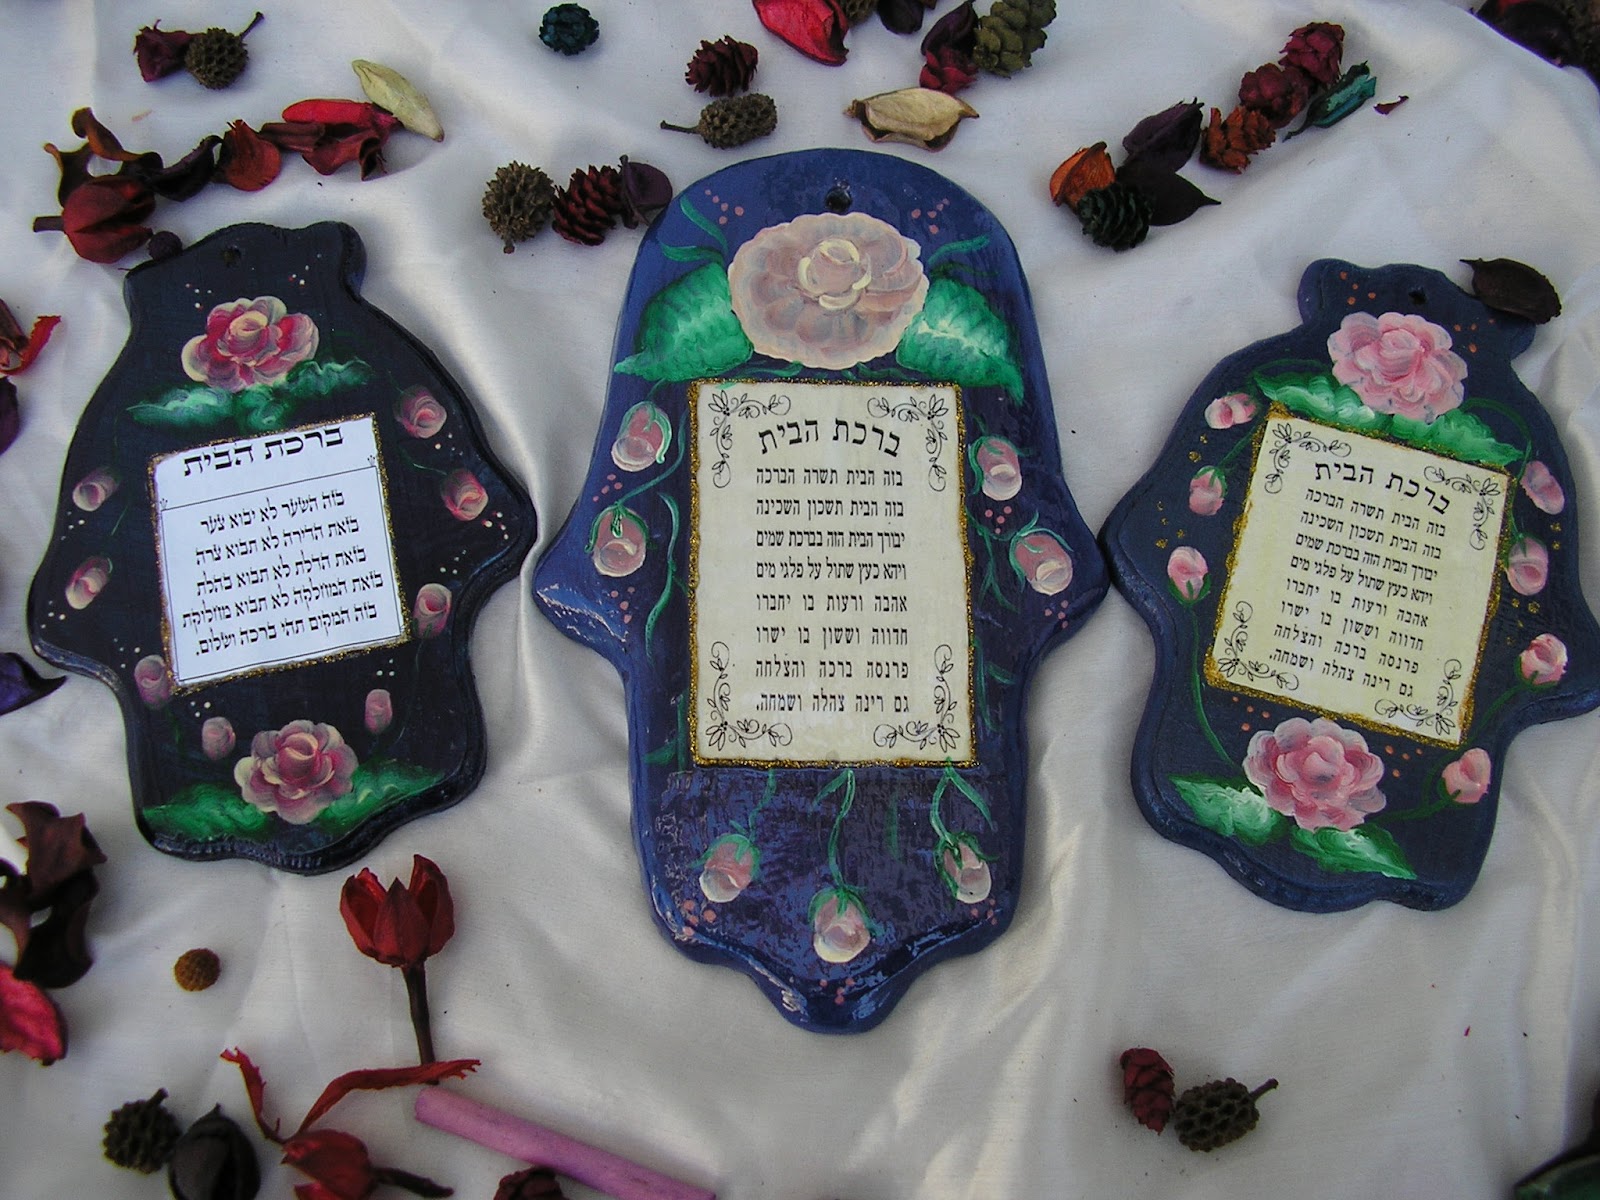 ברכת הבית
בזה השער לא יבוא צער
בזאת הדירה לא תבוא צרה
בזאת הדלת לא תבוא בהלת
בזאת המחלקה לא תבוא מחלוקת
בזה המקום תהי ברכה ושלום.
ברכת הבית
בזה הבית תשרה הברכה
בזה הבית תשכון השכינה
יבורך הבית הזה בברכת שמים
ויהא כעץ שתול על פלגי מים
אהבה ורעות בו יחברו
חדווה וששון בו ישרו
פרנסה ברכה והצלחה
גם רינה צהלה ושמחה.
ברכת הבית
בזה הבית תשרה הברכה
בזה הבית תשכון השכינה
יבורך הבית הזה בברכת שמים
ויהא כעץ שתול על פלגי מים
אהבה ורעות בו יחברו
חדווה וששון בו ישרו
פרנסה ברכה והצלחה
גם רינה צהלה ושמחה.